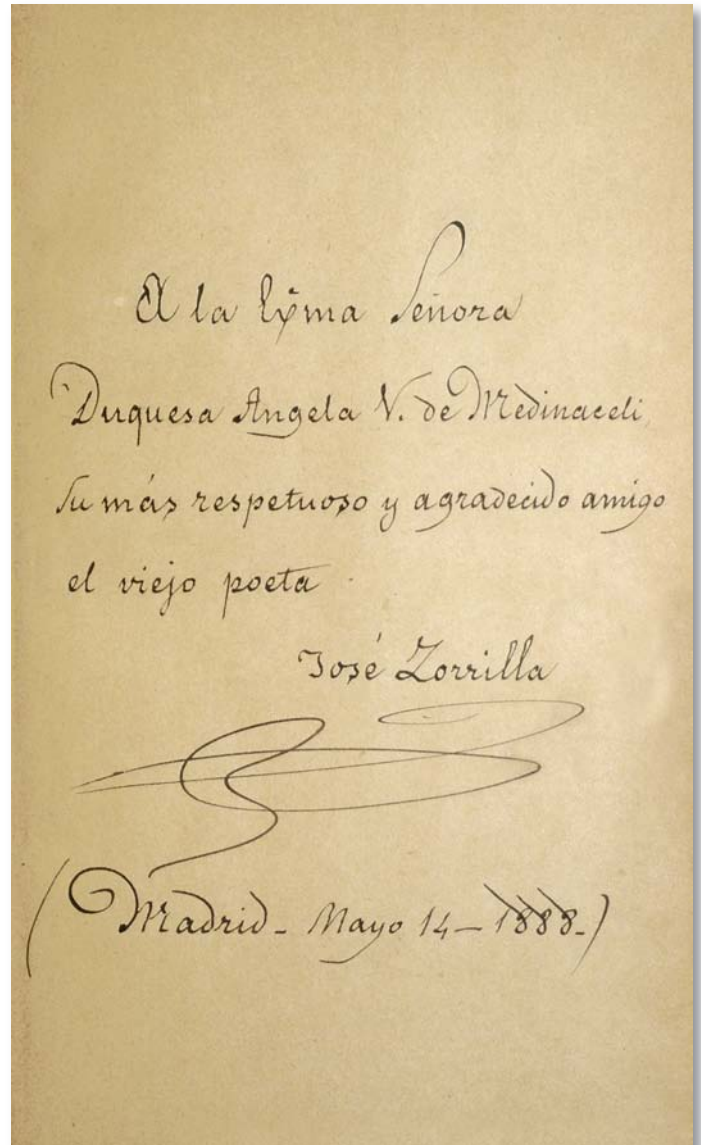 A la Exma Señora
Duquesa Angela V. de Medinaceli,
su más respetuoso y agradecido amigo
el viejo poeta
José Zorrilla
(Madrid - Mayo 14 - 1888-)